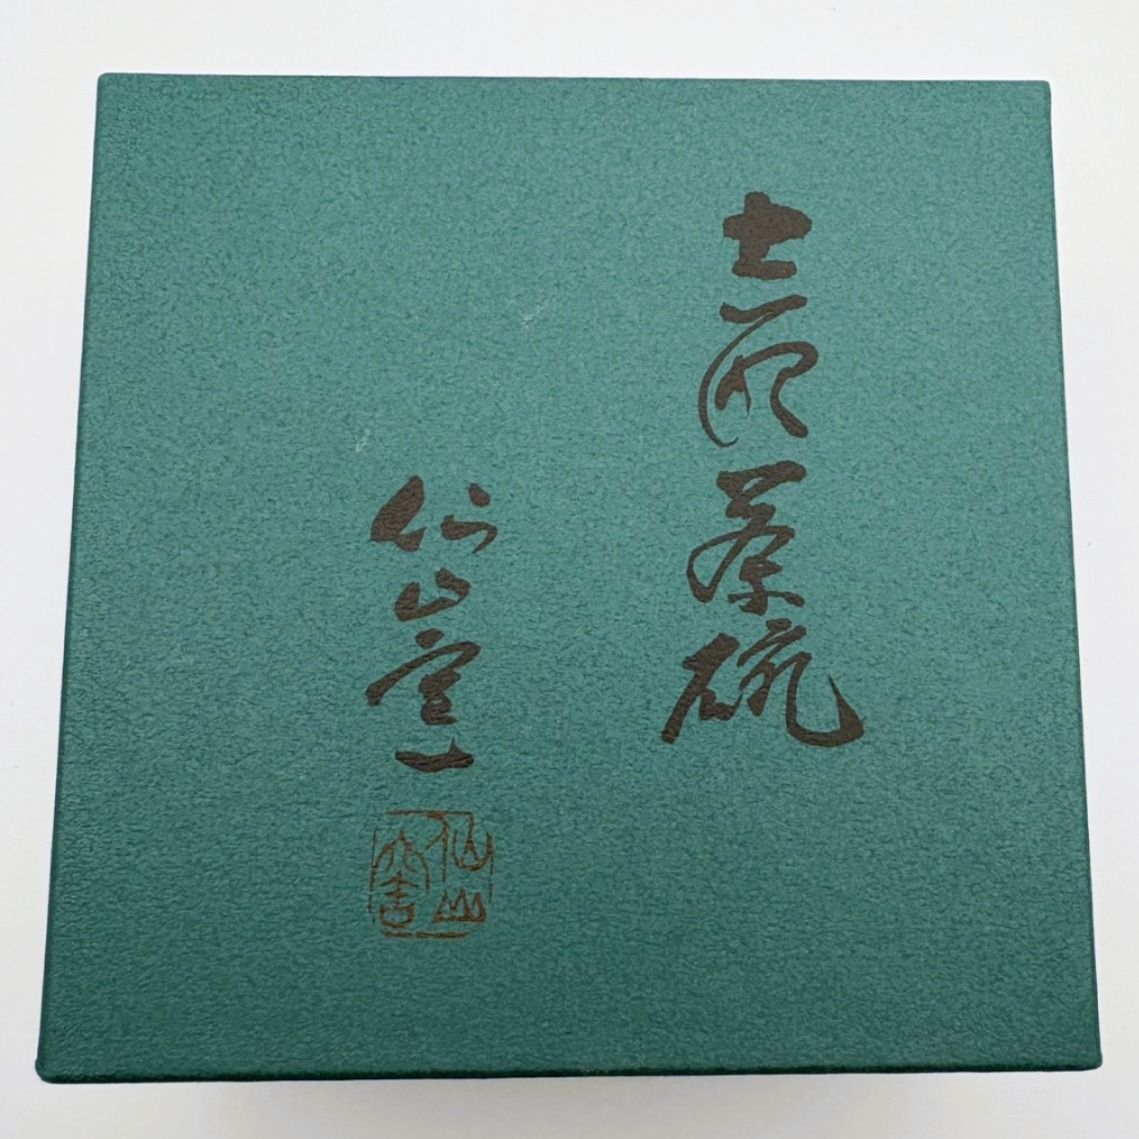 志野茶碗
仙山窯
仙山
窯